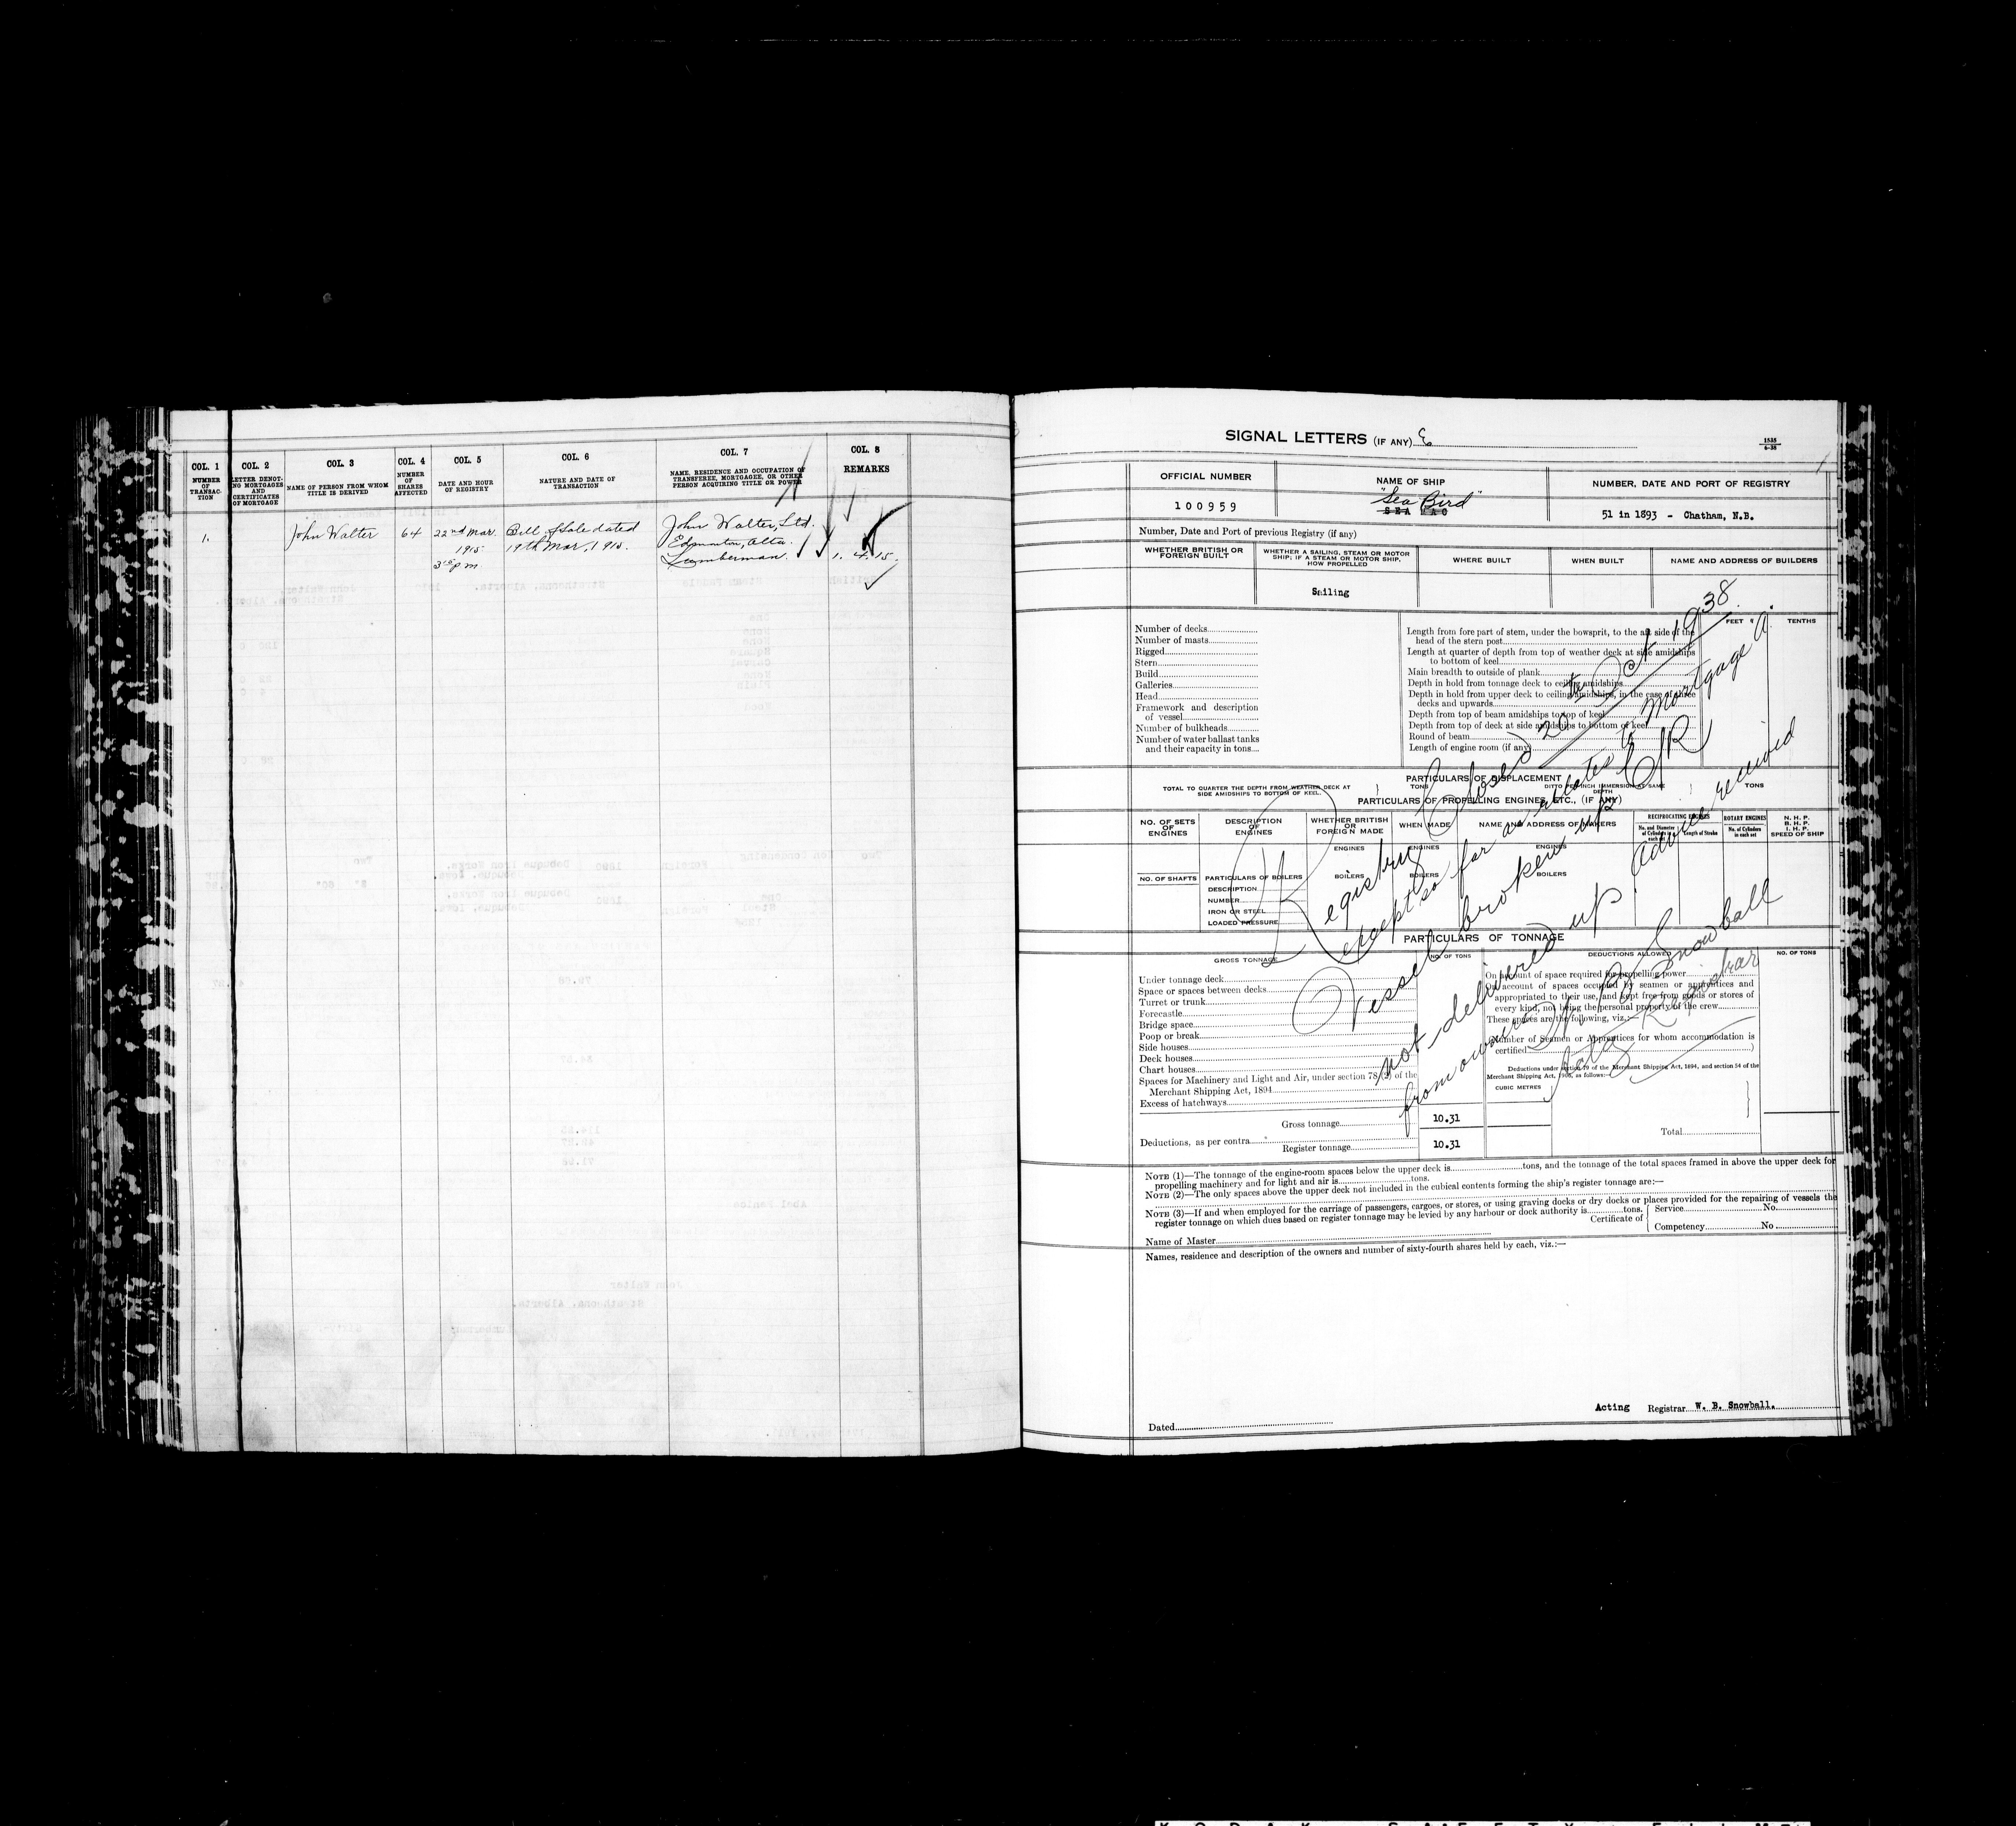 COL. 1
NUMBER
OF
TRANSAC-
TION
COL. 2
LETTER DENOT-
ING MORTGAGES
AND
CERTIFICATES
OF MORTGAGE
COL. 3
NAME OF PERSON FROM WHOM
TITLE IS DERIVED
COL. 4
NUMBER
OF
SHARES
AFFECTED
COL. 5
DATE AND HOUR
OF REGISTRY
COL. 6
NATURE AND DATE OF
TRANSACTION
COL. 7
NAME, RESIDENCE AND OCCUPATION OF
TRANSFEREE, MORTGAGEE, OR OTHER
PERSON ACQUIRING TITLE OR POWER
COL. 8
REMARKS
1.
John Walter
64
22nd Mar.
1915
3 p m
Bill of Sale dated
19th Mar. 1915.
John Walter, Ltd.
Edmonton, Alta.
Lumberman.
1. 4. 15.
SIGNAL LETTERS (IF ANY)
1535
6-38
OFFICIAL NUMBER
100959
NAME OF SHIP
"Sea Bird"
NUMBER, DATE AND PORT OF REGISTRY
51 in 1893 - Chatham, N.B.
Number, Date and Port of previous Registry (if any)
WHETHER BRITISH OR
FOREIGN BUILT
WHETHER A SAILING, STEAM OR MOTOR
SHIP; IF A STEAM OR MOTOR SHIP,
HOW PROPELLED
WHERE BUILT
WHEN BUILT
NAME AND ADDRESS OF BUILDERS
Sailing
Number of decks
Number of masts
Rigged
Stern
Build
Galleries
Head
Framework and description
of vessel
Number of bulkheads
Number of water ballast tanks
and their capacity in tons
FEET
TENTHS
Length from fore part of stem, under the bowsprit, to the aft side of the
head of the stern post
Length at quarter of depth from top of weather deck at side amidships
to bottom of keel
Main breadth to outside of plank
Depth in hold from tonnage deck to ceiling amidships
Depth in hold from upper deck to ceiling amidships, in the case of three
decks and upwards
Depth from top of beam amidships to top of keel
Depth from top of deck at side amidships to bottom of keel
Round of beam
Length of engine room (if any)
PARTICULARS OF DISPLACEMENT
TOTAL TO QUARTER THE DEPTH FROM WEATHER DECK AT
SIDE AMIDSHIPS TO BOTTOM OF KEEL
TONS
DITTO PER INCH IMMERSION AT SAME
DEPTH
TONS
PARTICULARS OF PROPELLING ENGINES, ETC., (IF ANY)
NO. OF SETS
OF
ENGINES
DESCRIPTION
OF
ENGINES
WHETHER BRITISH
OR
FOREIGN MADE
WHEN MADE
NAME AND ADDRESS OF MAKERS
RECIPROCATING ENGINES
No. and Diameter
of Cylinders in
each set
Length of Stroke
ROTARY ENGINES
No. of Cylinders
in each set
N. H. P.
B. H. P.
I. H. P.
SPEED OF SHIP
ENGINES
ENGINES
ENGINES
NO. OF SHAFTS
PARTICULARS OF BOILERS
BOILERS
BOILERS
BOILERS
DESCRIPTION
NUMBER
IRON OR STEEL
LOADED PRESSURE
Registry Closed 20th Oct 1938.
except so far as relates to Mortgage A.
Vessel broken up C/R
not delivered up. Advice received
from owners
W. B. Snowball
Registrar
PARTICULARS OF TONNAGE
GROSS TONNAGE
NO. OF TONS
DEDUCTIONS ALLOWED
NO. OF TONS
Under tonnage deck
Space or spaces between decks
Turret or trunk
Forecastle
Bridge space
Poop or break
Side houses
Deck houses
Chart houses
Spaces for Machinery and Light and Air, under section 78 (2) of the
Merchant Shipping Act, 1894
Excess of hatchways
Gross tonnage
10.31
Deductions, as per contra
Register tonnage
10.31
On account of space required for propelling power
On account of spaces occupied by seamen or apprentices and
appropriated to their use, and kept free from goods or stores of
every kind, not being the personal property of the crew
These spaces are the following, viz.:—
(Number of Seamen or Apprentices for whom accommodation is
certified)
Deductions under section 79 of the Merchant Shipping Act, 1894, and section 54 of the
Merchant Shipping Act, 1906, as follows:—
CUBIC METRES
Total
NOTE (1)—The tonnage of the engine-room spaces below the upper deck is tons, and the tonnage of the total spaces framed in above the upper deck for
propelling machinery and for light and air is tons.
NOTE (2)—The only spaces above the upper deck not included in the cubical contents forming the ship's register tonnage are:—
NOTE (3)—If and when employed for the carriage of passengers, cargoes, or stores, or using graving docks or dry docks or places provided for the repairing of vessels the
register tonnage on which dues based on register tonnage may be levied by any harbour or dock authority is tons.
Certificate of
Service No.
Competency No
Name of Master
Names, residence and description of the owners and number of sixty-fourth shares held by each, viz.:—
Acting Registrar W. B. Snowball.
Dated